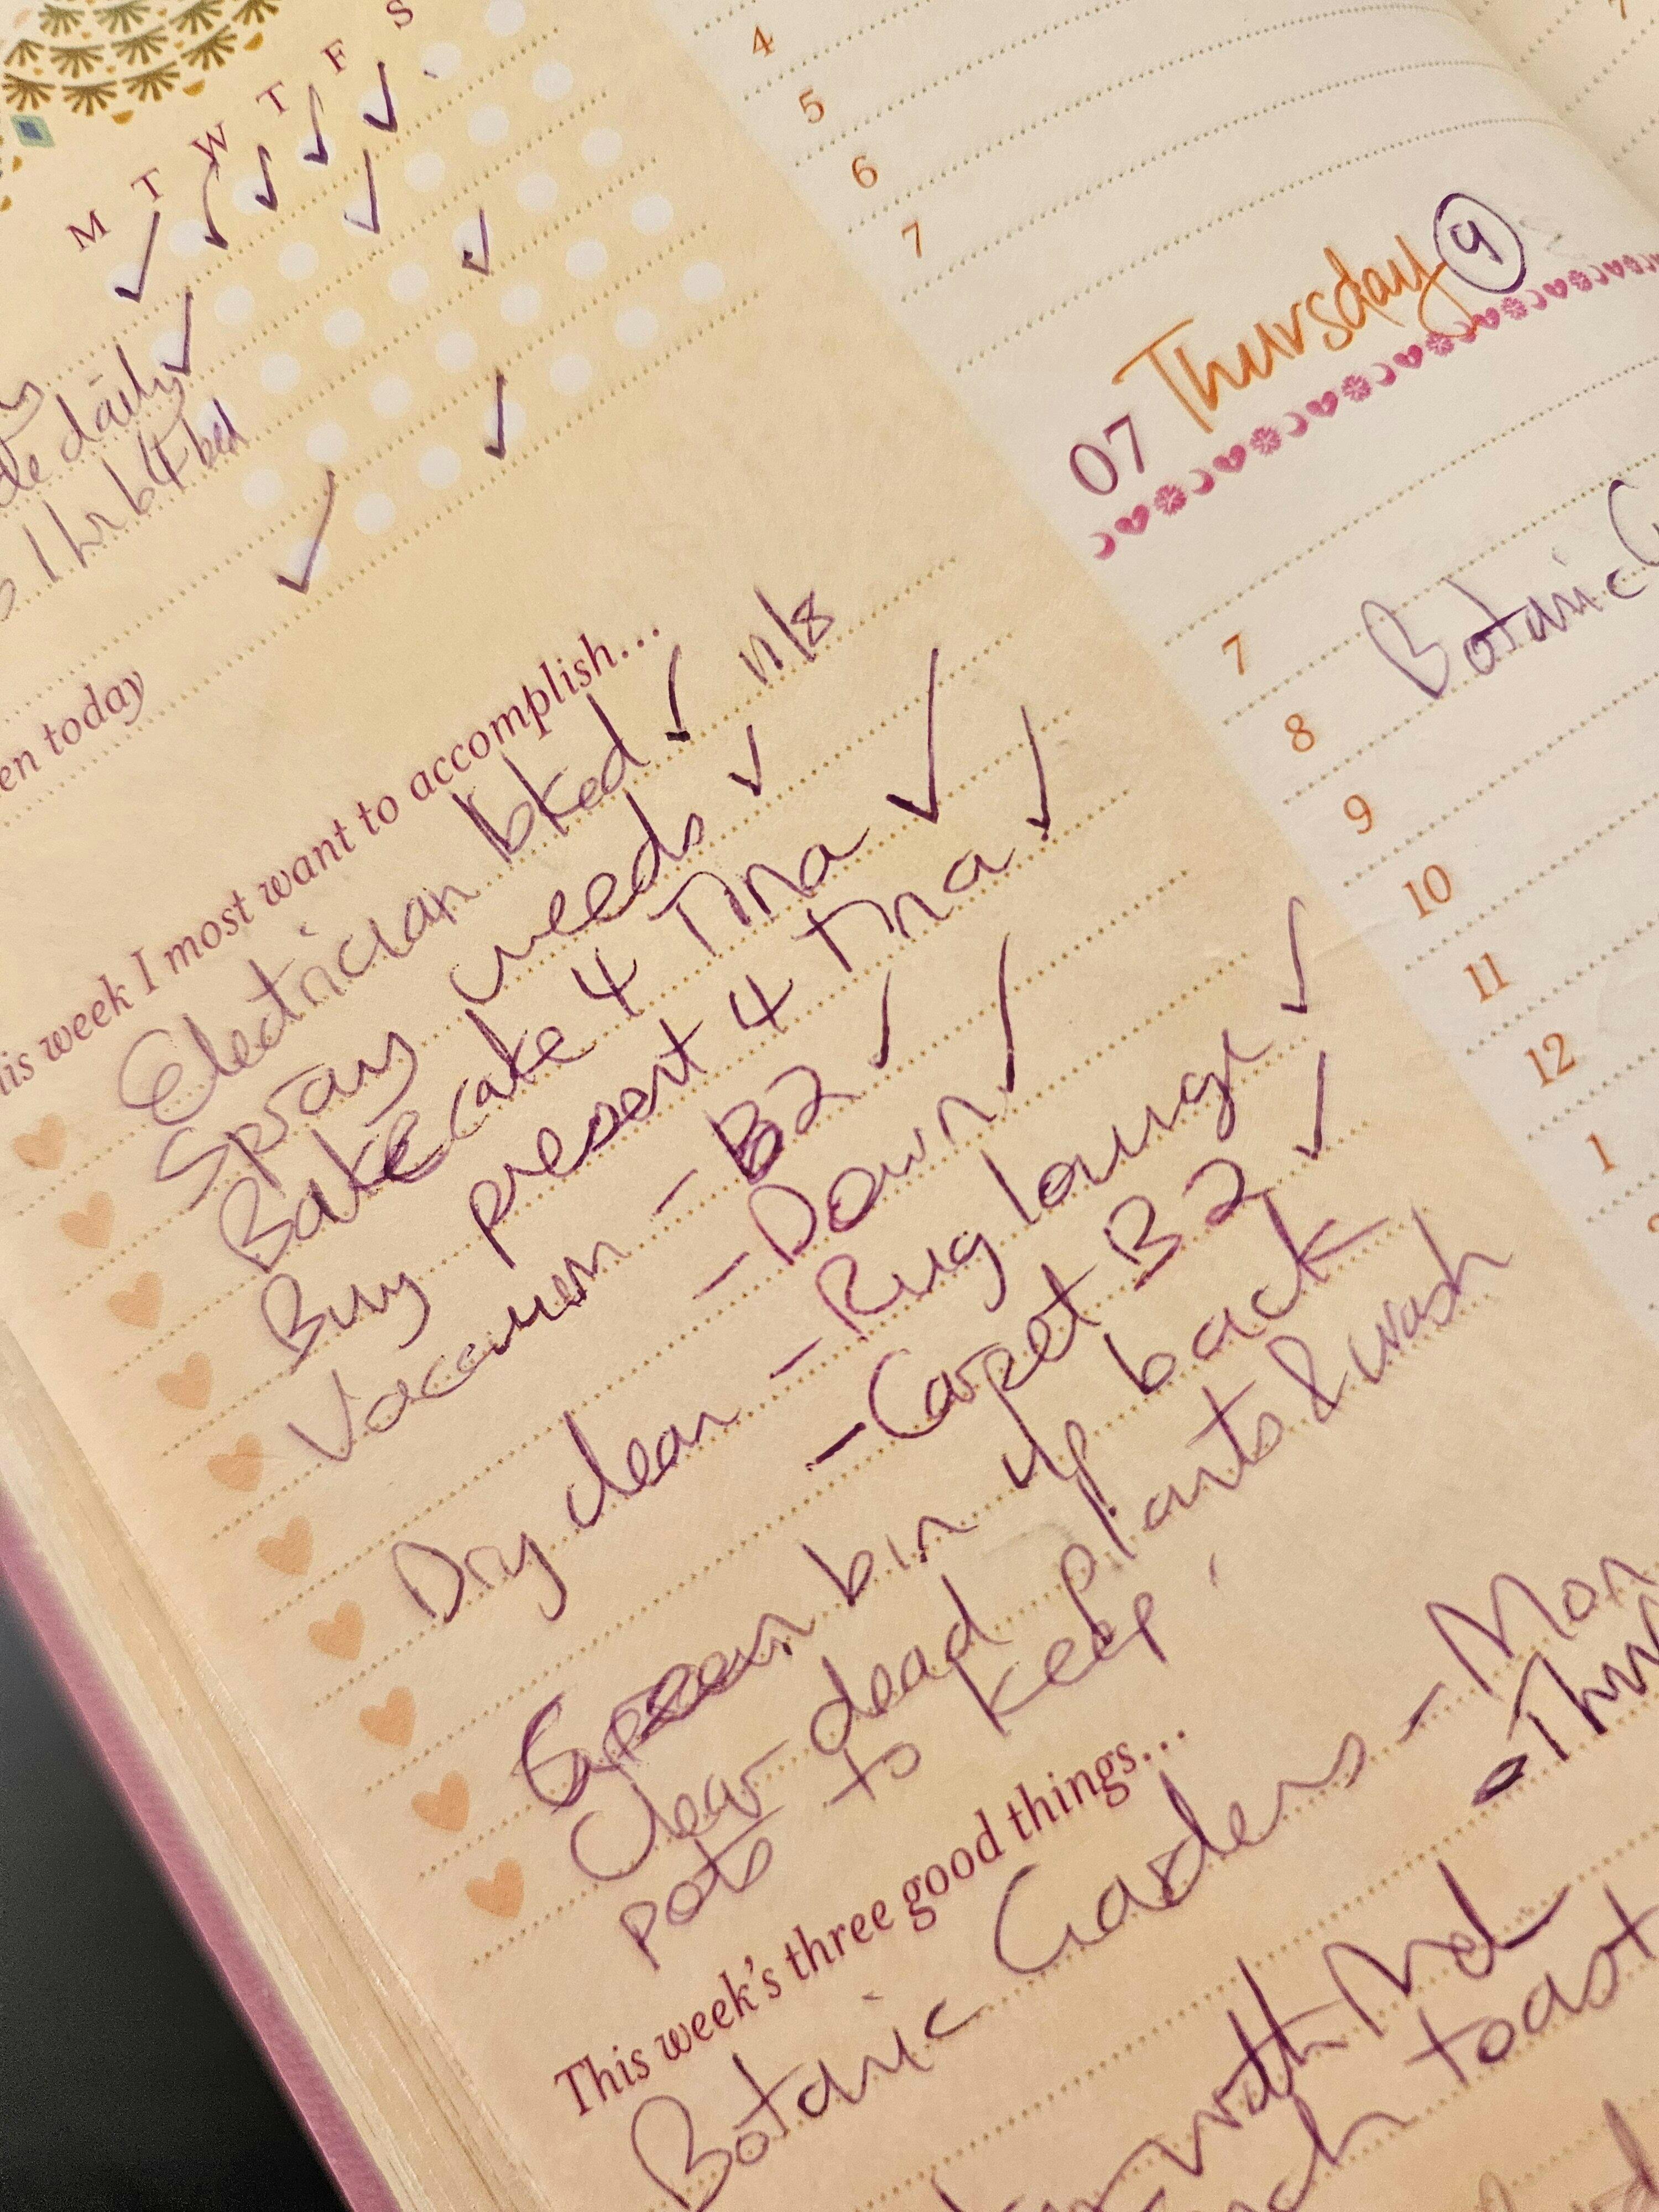 M T W T F S
daily
1 hr b4 bed
en today
his week I most want to accomplish...
Electrician bked ✓ 11/8
Spray weeds ✓
Bake cake 4 Tina ✓
Buy present 4 Tina ✓
Vacuum - B2 ✓
- Down ✓
Dry clean - Rug lounge ✓
- Carpet B2 ✓
Green bin up back
Clear dead plants & wash
pots to keep
This week's three good things...
Botanic Gardens - Mon
- Thu
with
toast
4
5
6
7
07 Thursday 9
7
8 Botanic G
9
10
11
12
1